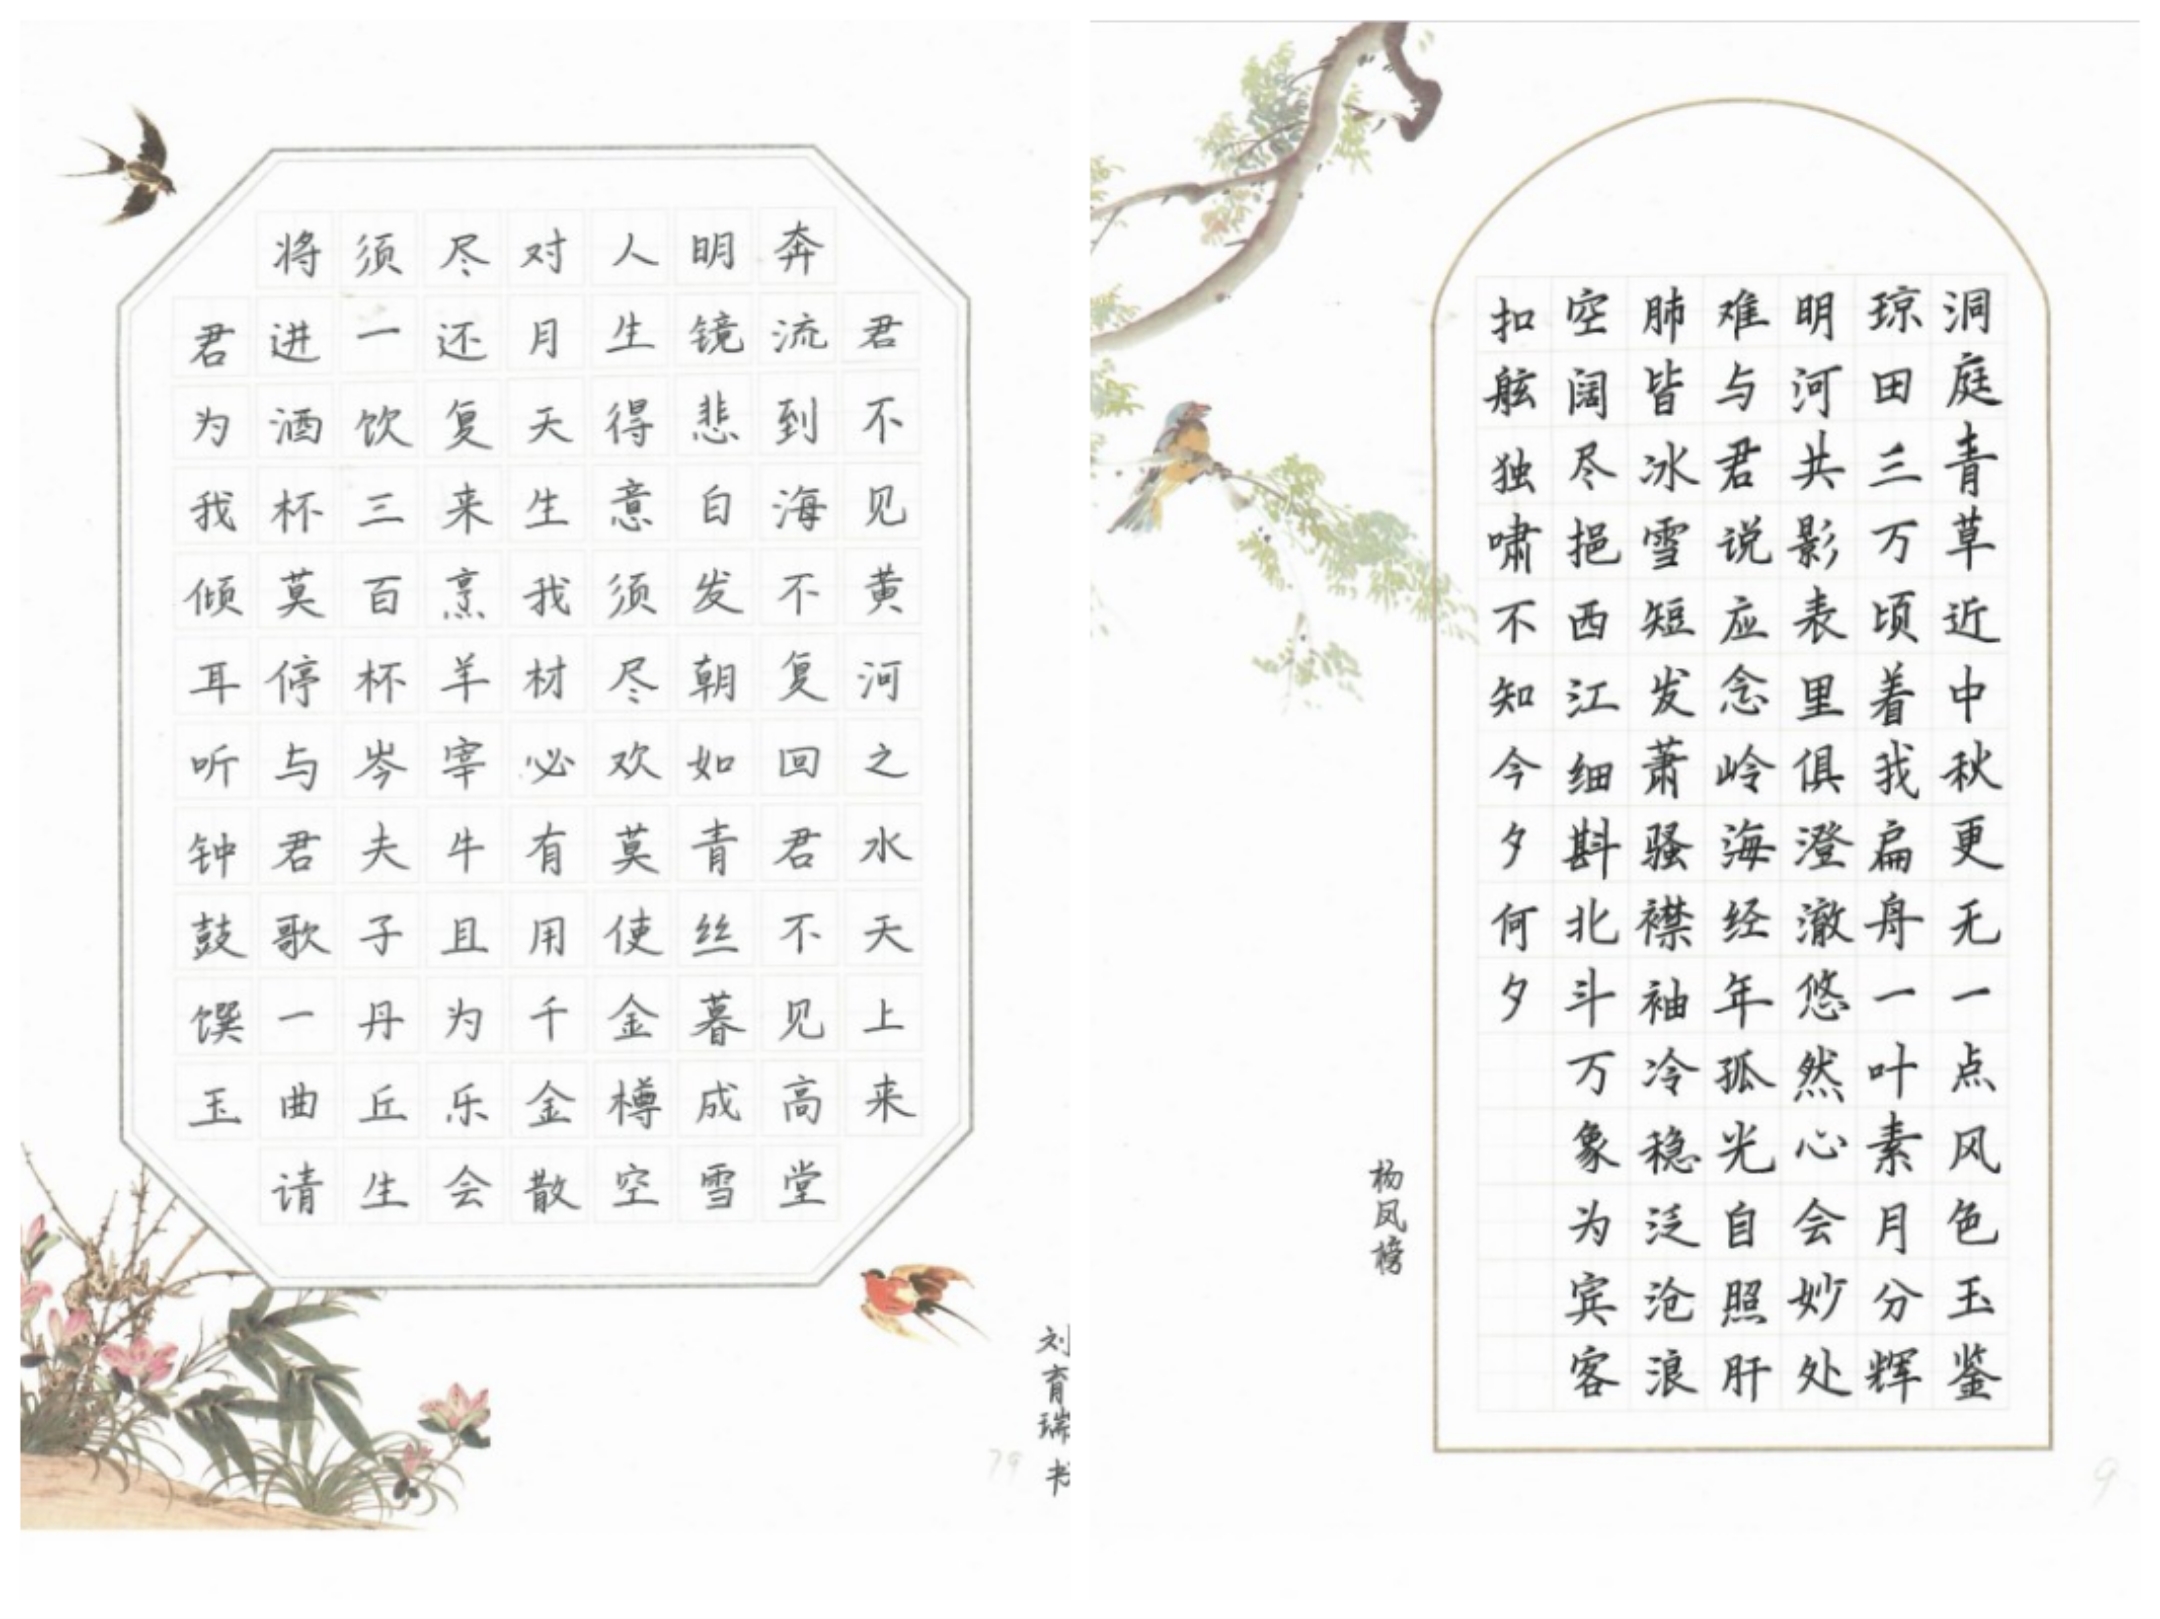 君不见黄河之水天上来
奔流到海不复回君不见高堂
明镜悲白发朝如青丝暮成雪
人生得意须尽欢莫使金樽空
对月天生我材必有用千金散
尽还复来烹羊宰牛且为乐会
须一饮三百杯岑夫子丹丘生
将进酒杯莫停与君歌一曲请
君为我倾耳听钟鼓馔玉
刘育瑞书
79
洞庭青草近中秋更无一点风色玉鉴
琼田三万顷着我扁舟一叶素月分辉
明河共影表里俱澄澈悠然心会妙处
难与君说应念岭海经年孤光自照肝
肺皆冰雪短发萧骚襟袖冷稳泛沧浪
空阔尽挹西江细斟北斗万象为宾客
扣舷独啸不知今夕何夕
杨凤榜
9